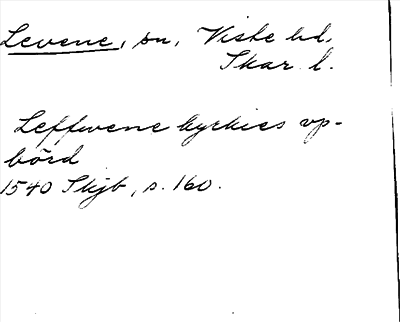 Levene, sn, Viste hd,
Skar. l.
Leffwene kyrkies vp-
börd
1540 Skjb, s. 160.